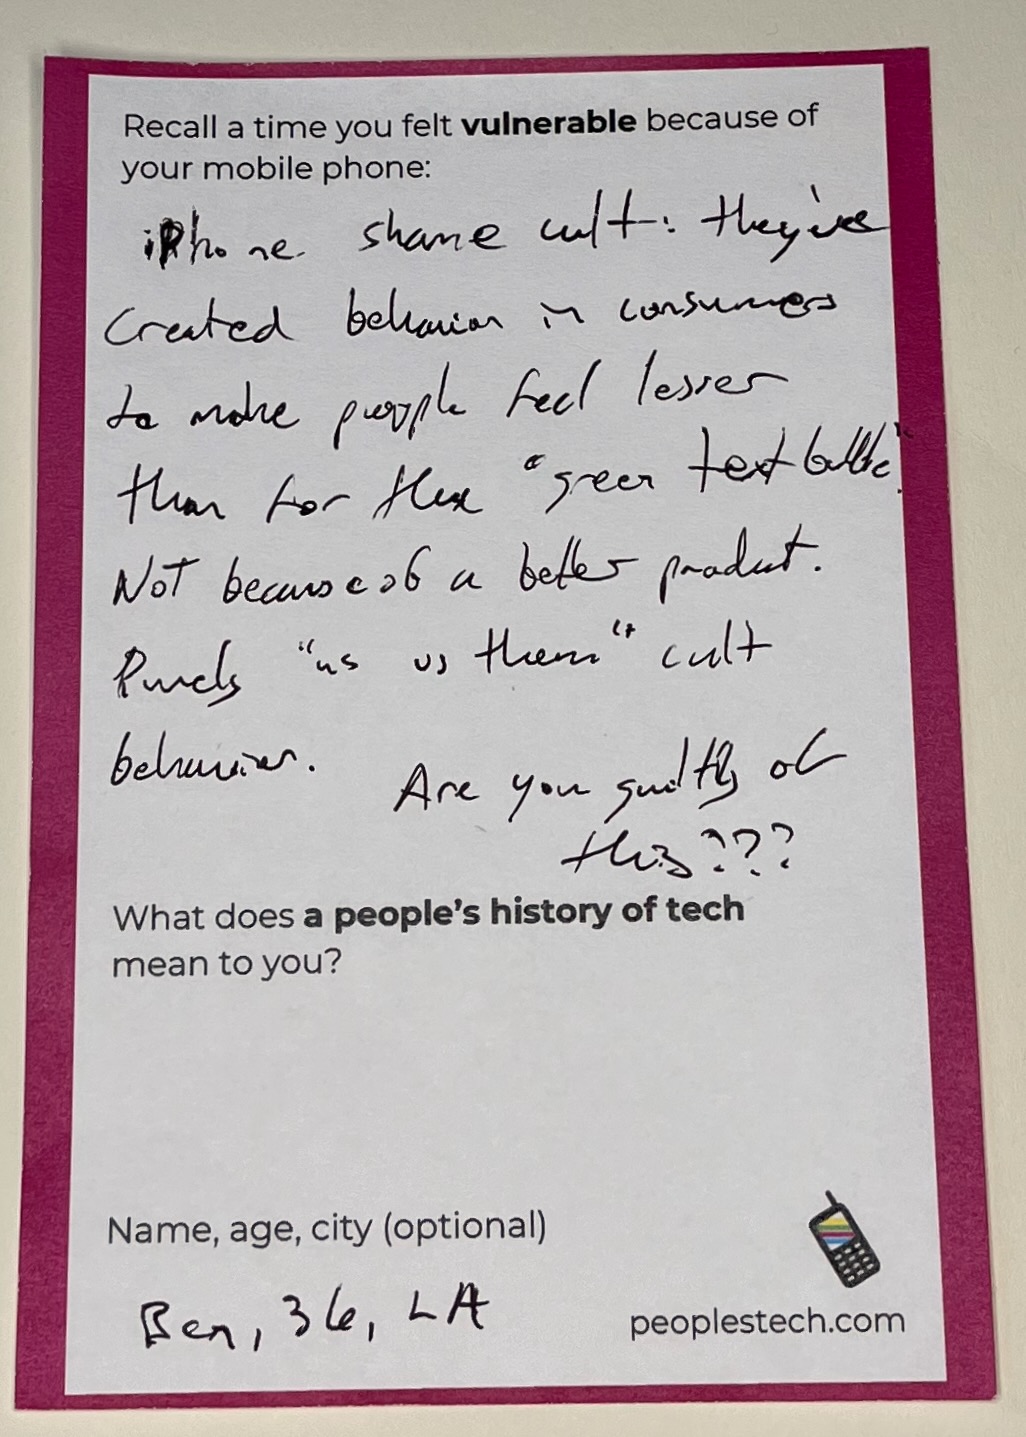 Recall a time you felt vulnerable because of
your mobile phone:
iPhone shame cult: they've
created behavior in consumers
to make people feel lesser
than for the "green text bubble".
Not because of a better product.
Purely "us vs them" cult
behavior. Are you guilty of
this???
What does a people's history of tech
mean to you?
Name, age, city (optional)
Ben, 36, LA
peoplestech.com